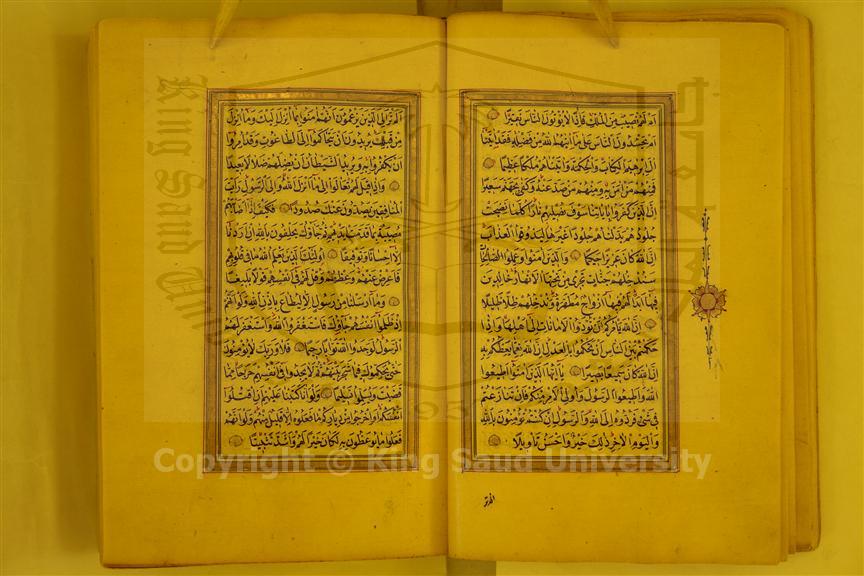 ام لهم نصيب من الملك فاذا لا يؤتون الناس نقيرا
ام يحسدون الناس على ما اتيهم الله من فضله فقد اتينا
ال ابرهيم الكتاب والحكمة واتيناهم ملكا عظيما
فمنهم من امن به ومنهم من صد عنه وكفى بجهنم سعيرا
ان الذين كفروا باياتنا سوف نصليهم نارا كلما نضجت
جلودهم بدلناهم جلودا غيرها ليذوقوا العذاب
ان الله كان عزيزا حكيما والذين امنوا وعملوا الصالحات
سندخلهم جنات تجري من تحتها الانهار خالدين
فيها ابدا لهم فيها ازواج مطهرة وندخلهم ظلا ظليلا
ان الله يامركم ان تؤدوا الامانات الى اهلها واذا
حكمتم بين الناس ان تحكموا بالعدل ان الله نعما يعظكم به
ان الله كان سميعا بصيرا يا ايها الذين امنوا اطيعوا
الله واطيعوا الرسول واولي الامر منكم فان تنازعتم
في شيء فردوه الى الله والرسول ان كنتم تؤمنون بالله
واليوم الاخر ذلك خير واحسن تاويلا
الم تر
الم تر الى الذين يزعمون انهم امنوا بما انزل اليك وما انزل
من قبلك يريدون ان يتحاكموا الى الطاغوت وقد امروا
ان يكفروا به ويريد الشيطان ان يضلهم ضلالا بعيدا
واذا قيل لهم تعالوا الى ما انزل الله والى الرسول رايت
المنافقين يصدون عنك صدودا فكيف اذا اصابتهم
مصيبة بما قدمت ايديهم ثم جاؤك يحلفون بالله ان اردنا
الا احسانا وتوفيقا اولئك الذين يعلم الله ما في قلوبهم
فاعرض عنهم وعظهم وقل لهم في انفسهم قولا بليغا
وما ارسلنا من رسول الا ليطاع باذن الله ولو انهم
اذ ظلموا انفسهم جاؤك فاستغفروا الله واستغفر لهم
الرسول لوجدوا الله توابا رحيما فلا وربك لا يؤمنون
حتى يحكموك فيما شجر بينهم ثم لا يجدوا في انفسهم حرجا مما
قضيت ويسلموا تسليما ولو انا كتبنا عليهم ان اقتلوا
انفسكم او اخرجوا من دياركم ما فعلوه الا قليل منهم ولو انهم
فعلوا ما يوعظون به لكان خيرا لهم واشد تثبيتا
King Saud University
Copyright © King Saud University